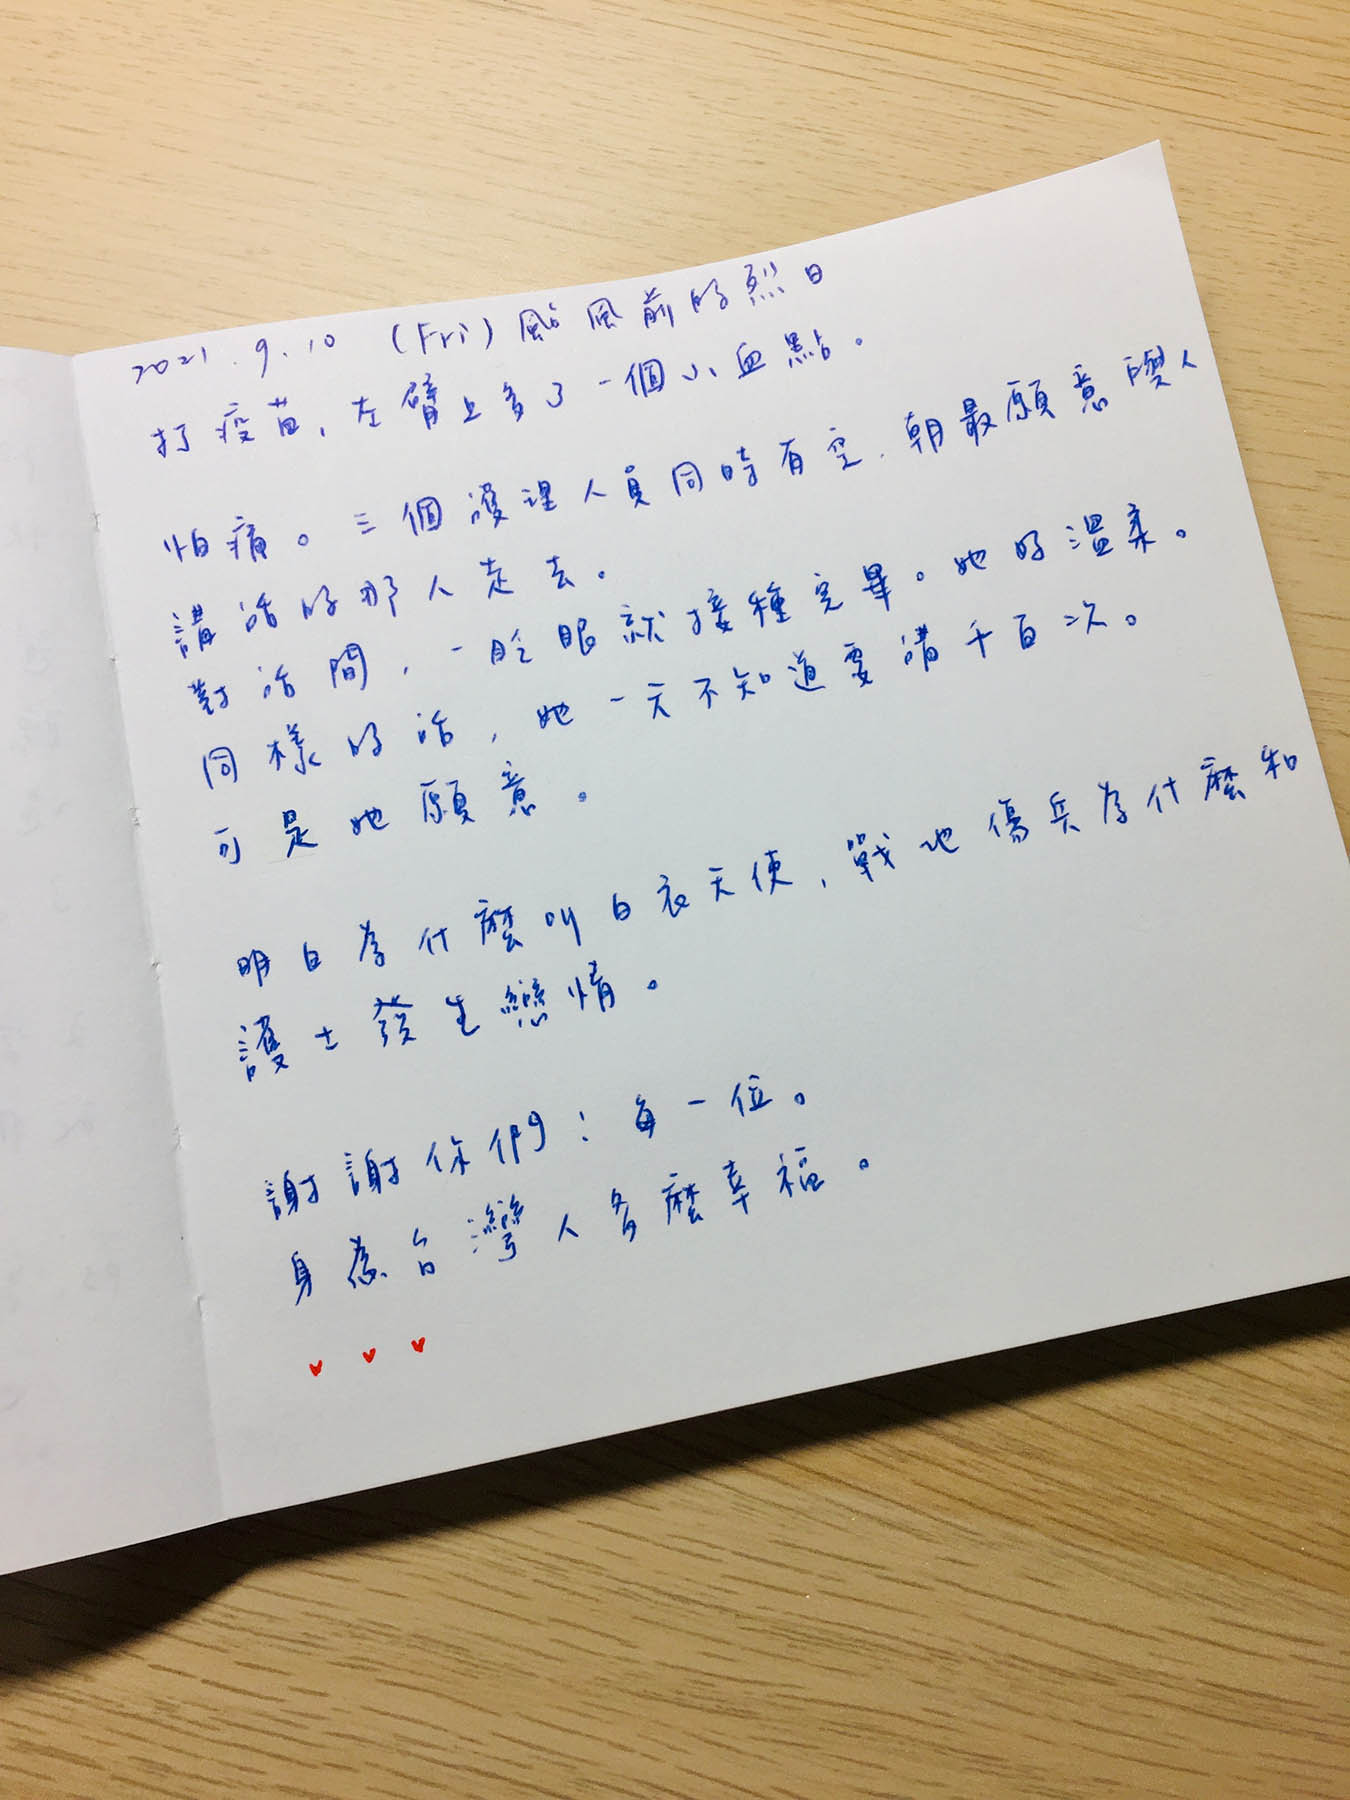 2021.9.10 (Fri) 颱風前的烈日
打疫苗,左臂上多了一個小血點。
怕痛。三個護理人員同時有空,朝最願意與人
講話的那人走去。
對話間,一眨眼就接種完畢。她好溫柔。
同樣的話,她一天不知道要講千百次。
可是她願意。
明白為什麼叫白衣天使,戰地傷兵為什麼和
護士發生戀情。
謝謝你們!每一位。
身為台灣人多麼幸福。